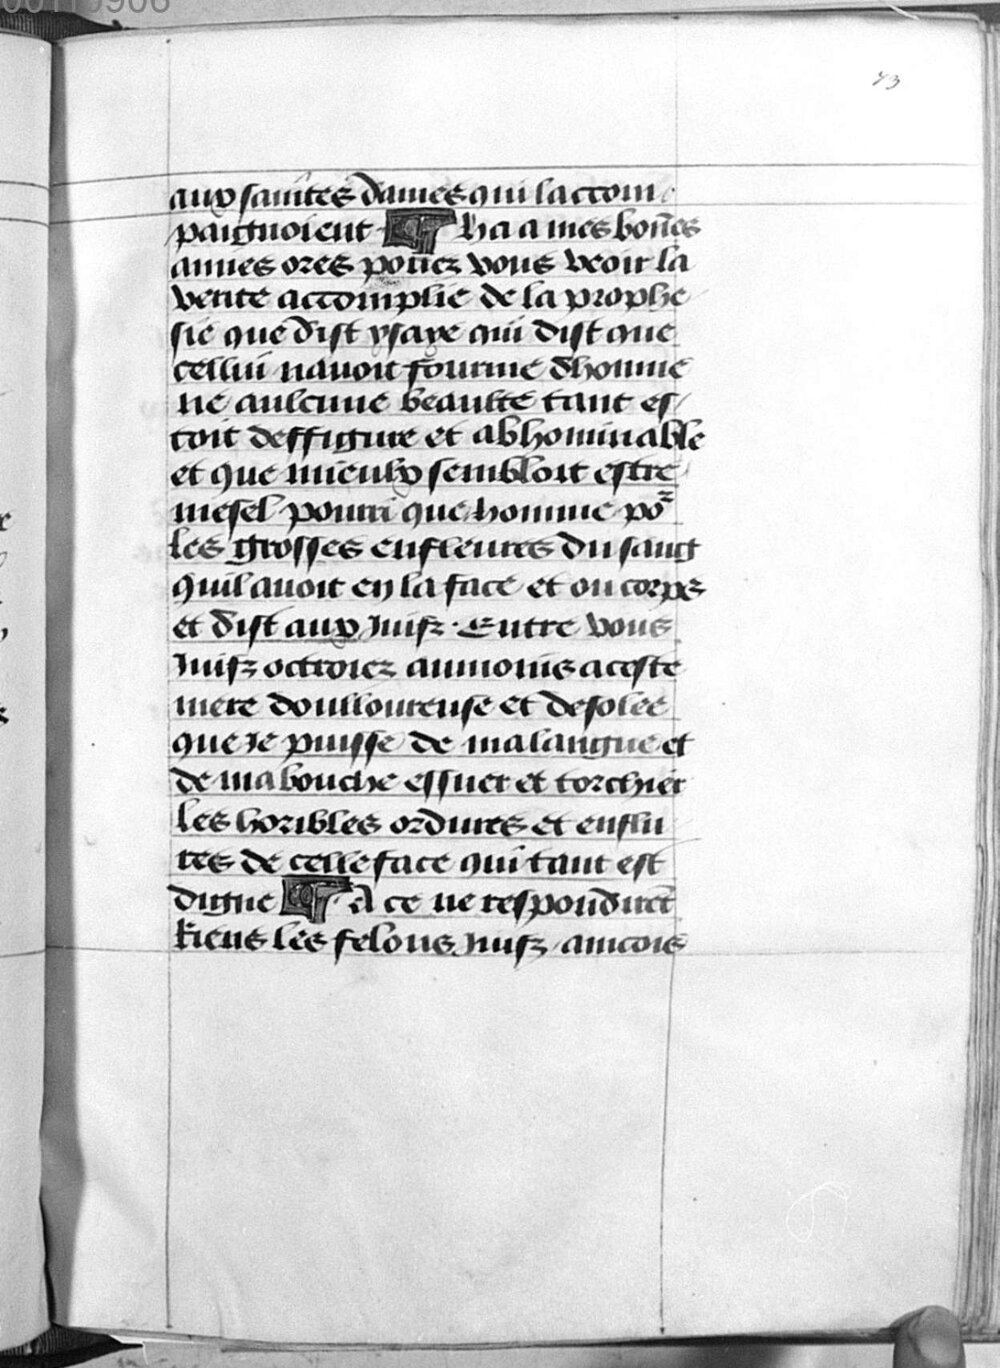 73
aux sainctes dames qui lacom
paignoient ¶ Ha a mes bonēs
amies ores pouez vous veoir la
verite accomplie de la prophe
sie que dist ysaye qui dist que
cellui nauoit fourme dhomme
ne aulcune beaulte tant es
toit deffigure et abhominable
et que mieulx sembloit estre
mesel pourri que homme por
les grosses enfleures du sang
quil auoit en la face et ou corps
et dist aux Juifz. Entre vous
Juifz octroiez aumoins a ceste
mere doulloureuse et desolee
que Je puisse de ma langue et
de ma bouche essuer et torchier
les horibles ordures et enflu
res de celle face qui tant est
digne ¶ A ce ne respondirēt
Riens les felons Juifz aincois